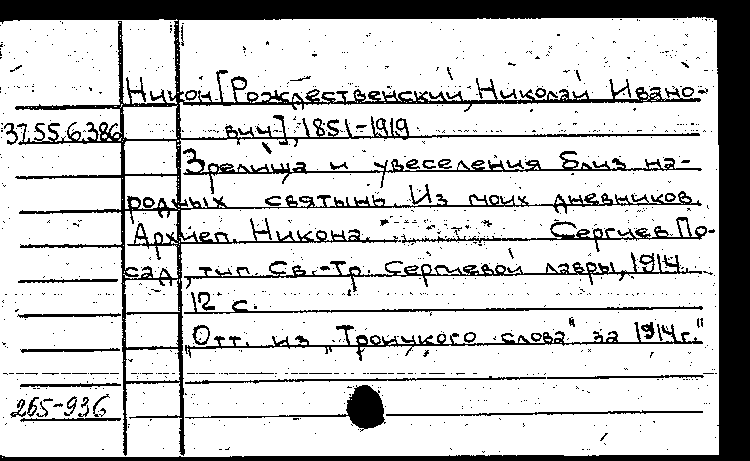 Никон [Рождественский, Николай Ивано-
37.55.6.386 вич], 1851-1919
Зрелища и увеселения близ на-
родных святынь. Из моих дневников.
Архиеп. Никона. Сергиев По-
сад, тип. Св.-Тр. Сергиевой лавры, 1914.
12 с.
„Отт. из „Троицкого слова" за 1914 г."
265-936